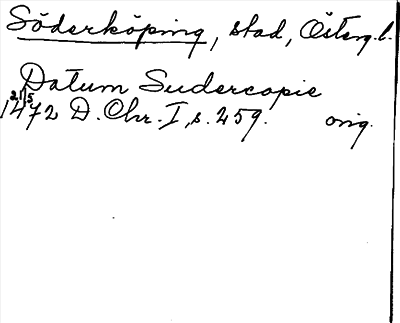 Söderköping, stad, Österg. l.
Datum Sudercopie
21/5
1472 D. Chr. I, s. 259. orig.